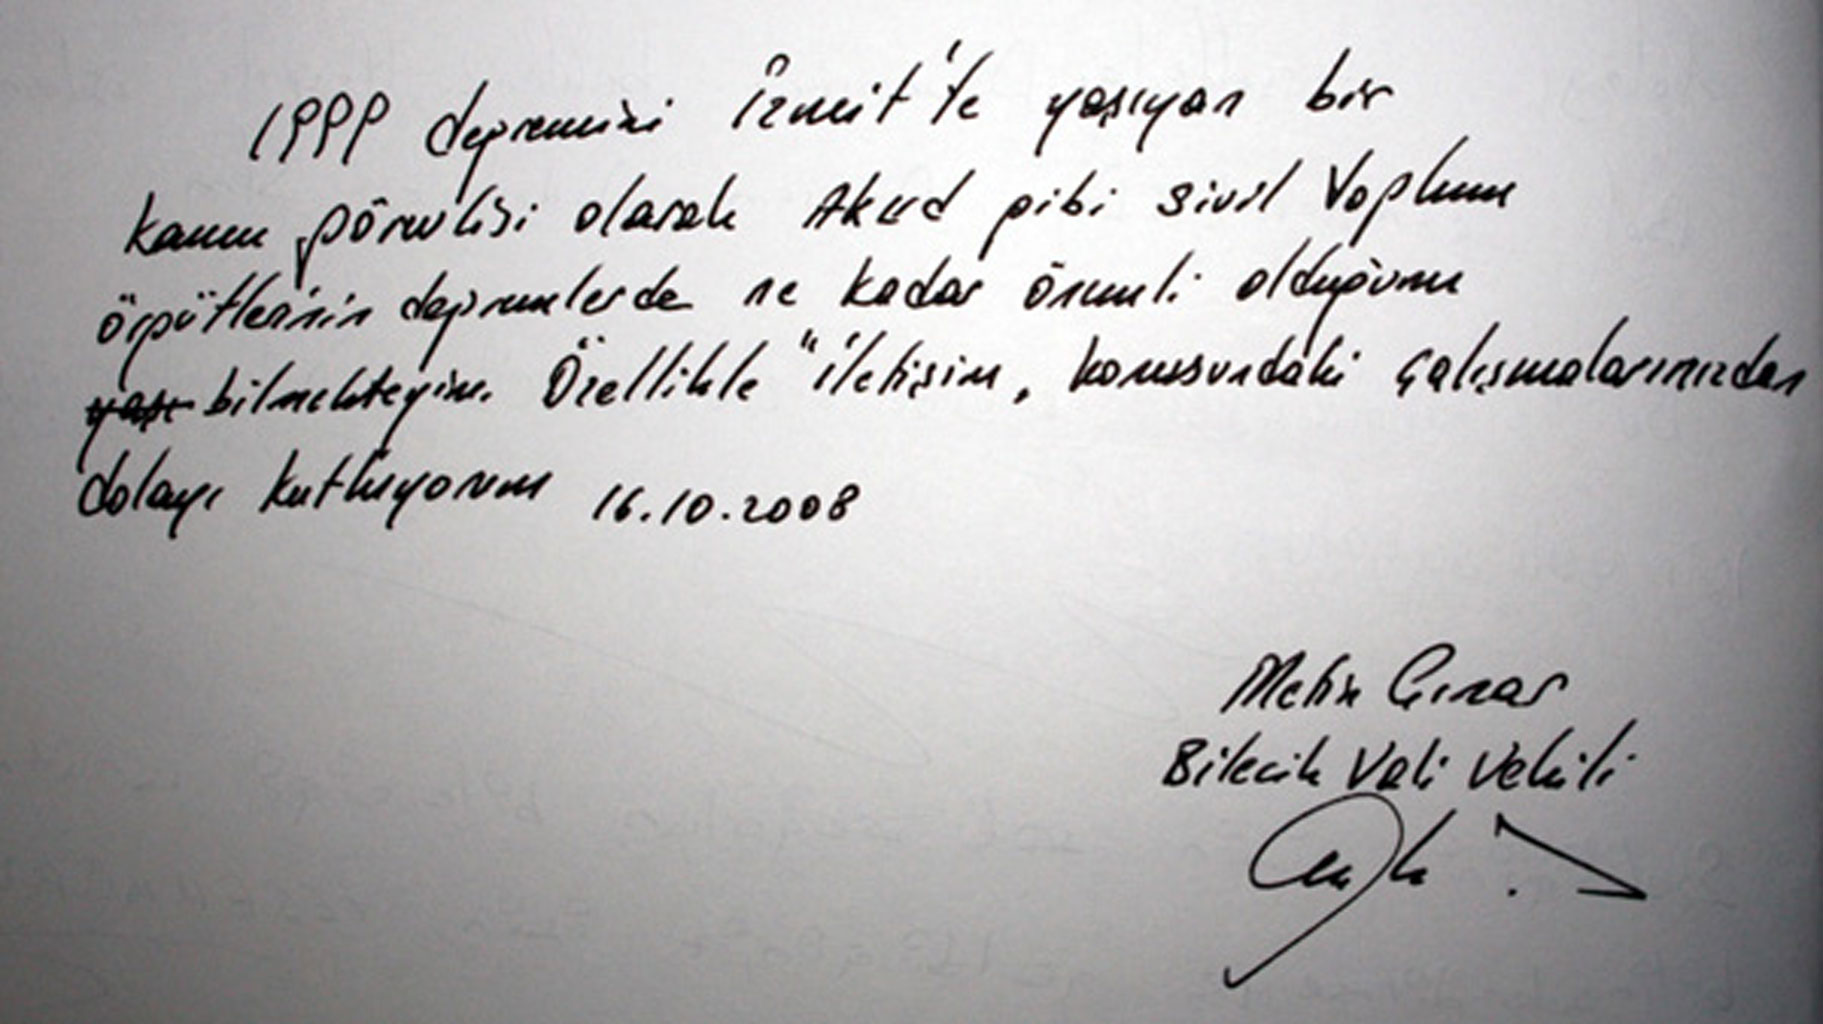 1999 depremini İzmit'te yaşıyan bir
kamu görevlisi olarak Akud gibi sivil toplum
örgütlerinin depremlerde ne kadar önemli olduğunu
yaşı bilmekteyim. Özellikle "iletişim, konusundaki çalışmalarınızdan
dolayı kutluyorum 16.10.2008
Metin Çınar
Bilecik Vali Vekili